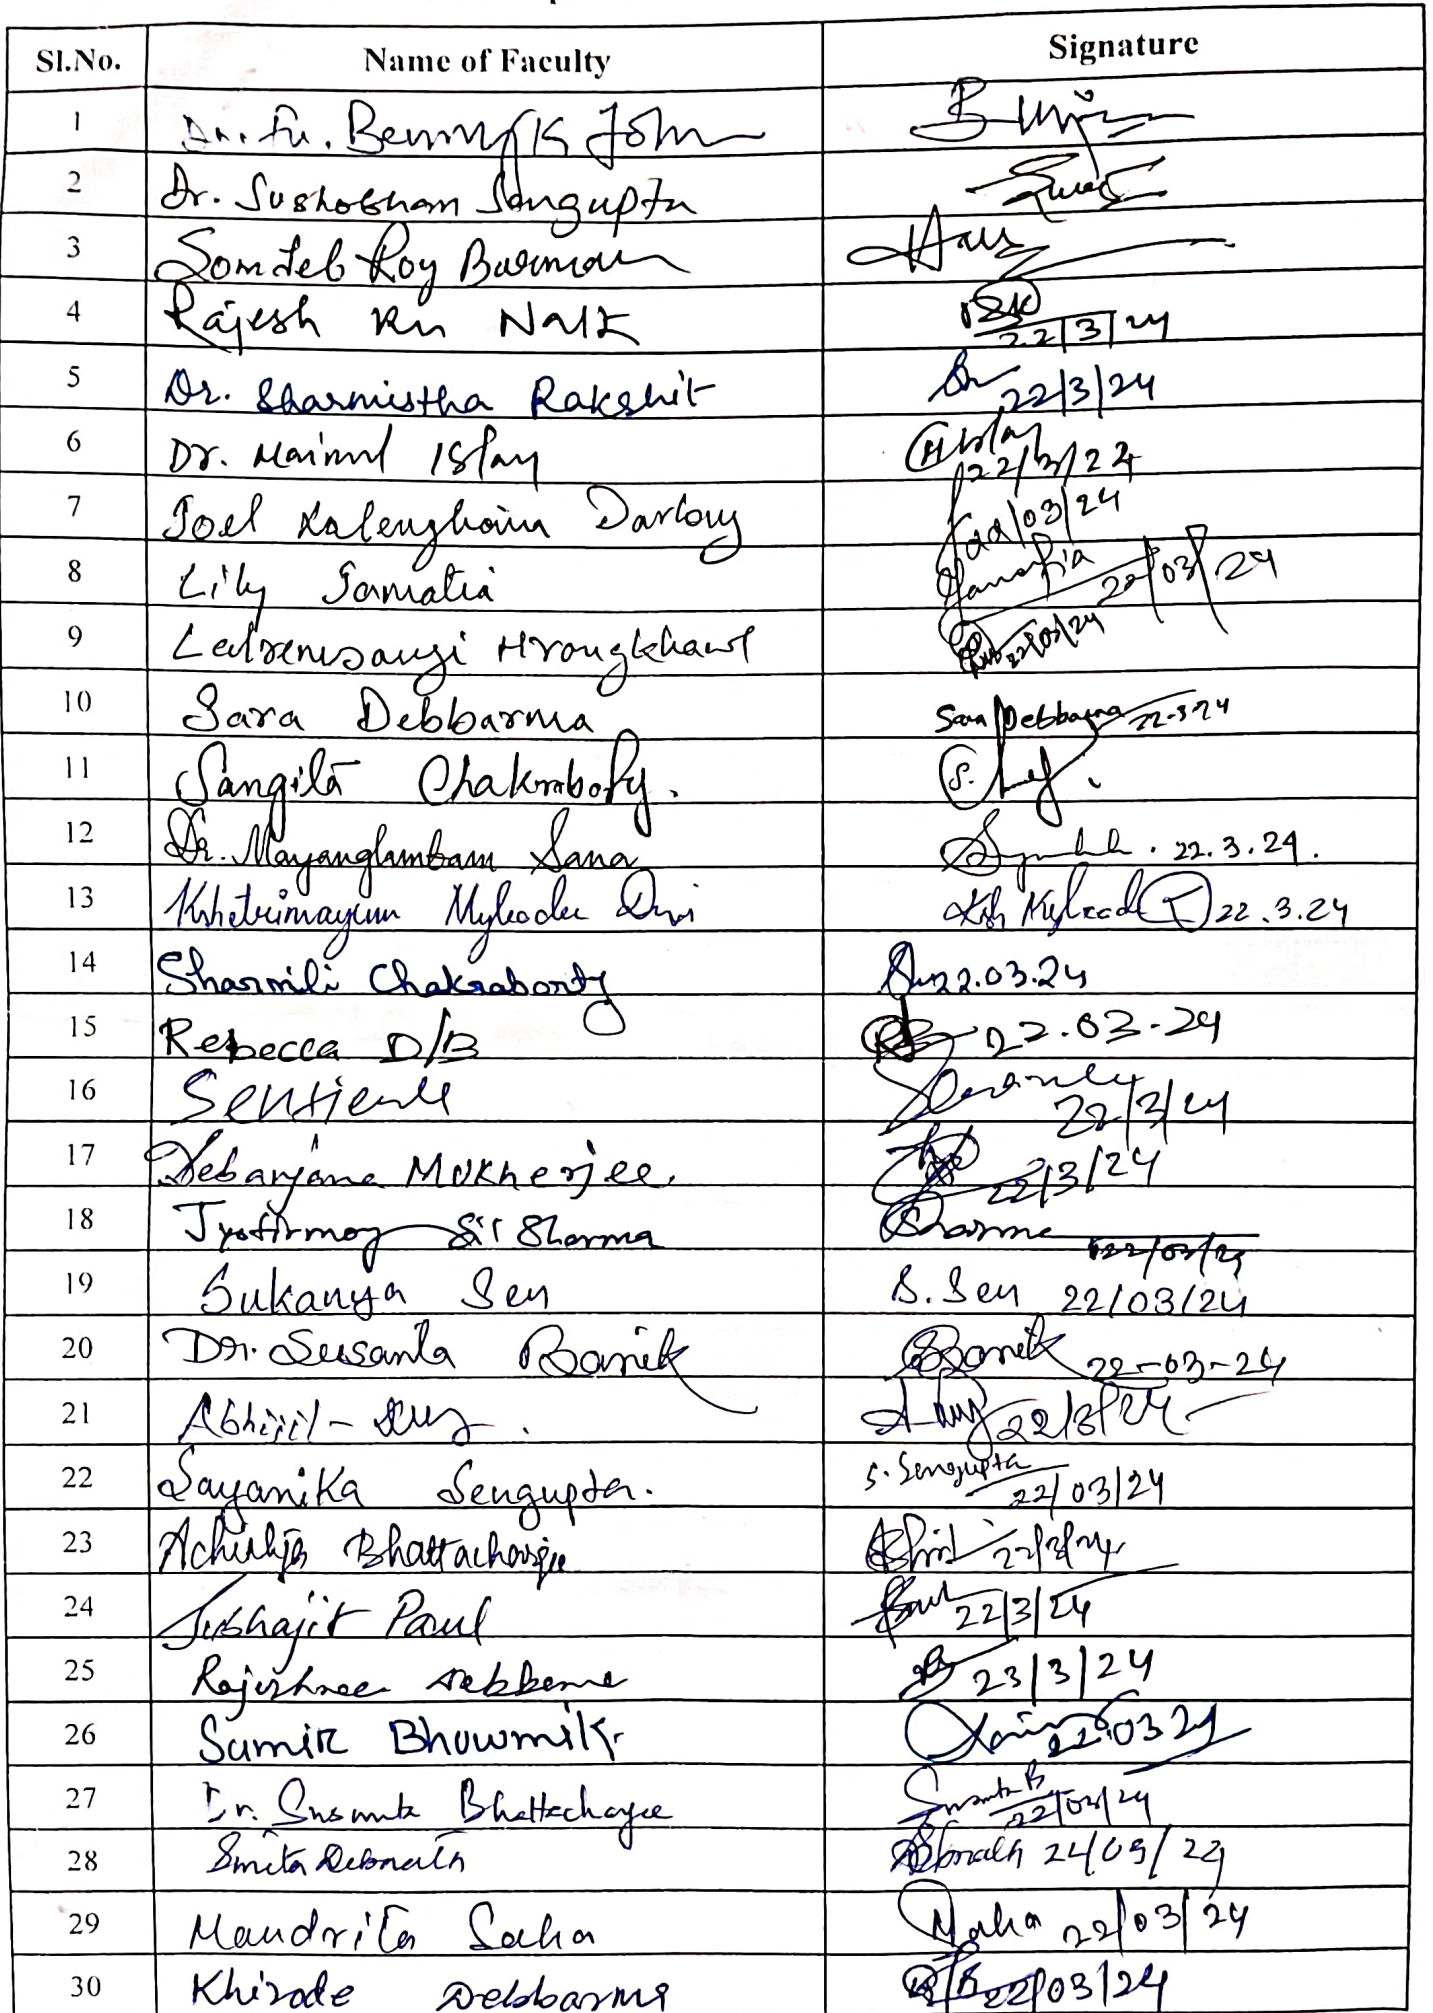 Sl.No. Name of Faculty Signature
1 Dr. Fr. Benny K John
2 Dr. Sushobhan Sengupta
3 Somdeb Roy Burman
4 Rajesh Kr Naik 22/3/24
5 Dr. Sharmistha Rakshit 22/3/24
6 Dr. Mainul Islam 22/3/24
7 Joel Lalenghaim Darlong 22/03/24
8 Lily Jamatia Jamatia 22/03/24
9 Hrangkhawl 22/03/24
10 Sara Debbarma Sara Debbarma 22-3-24
11 Sangita Chakraborty.
12 Dr. Mayanglambam Sana 22.3.24.
13 Khetrimayum Devi 22.3.24
14 Sharmili Chakraborty 22.03.24
15 Rebecca D/B 22.03.24
16 22/3/24
17 Debanjana Mukherjee. 22/3/24
18 Jyotirmoy Sharma Sharma 22/03/24
19 Sukanya Sen S. Sen 22/03/24
20 Dr. Susanta Banik SBanik 22-03-24
21 Abhijit 22/3/24
22 Sayanika Sengupta. S. Sengupta 22/03/24
23 Bhattacharjee 22/3/24
24 Subhajit Paul 22/3/24
25 Rajeshree Debbarma 23/3/24
26 Samir Bhowmik. 22.03.24
27 Dr. Susmita Bhattacharjee 22/03/24
28 Smita Debnath
29 Mandrita Saha 22/03/24
30 Khirode Debbarma 22/03/24